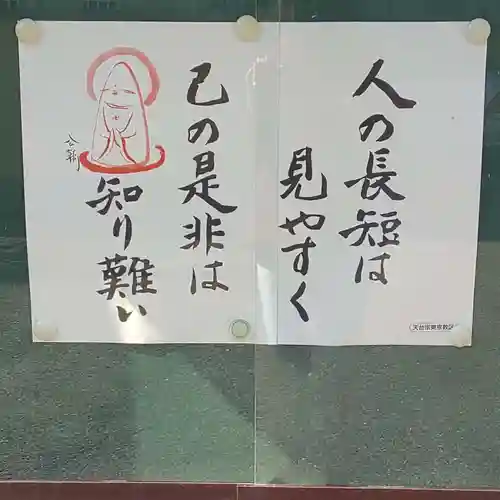 人の長短は
見やすく
己の是非は
知り難い
合掌
天台宗東京教区